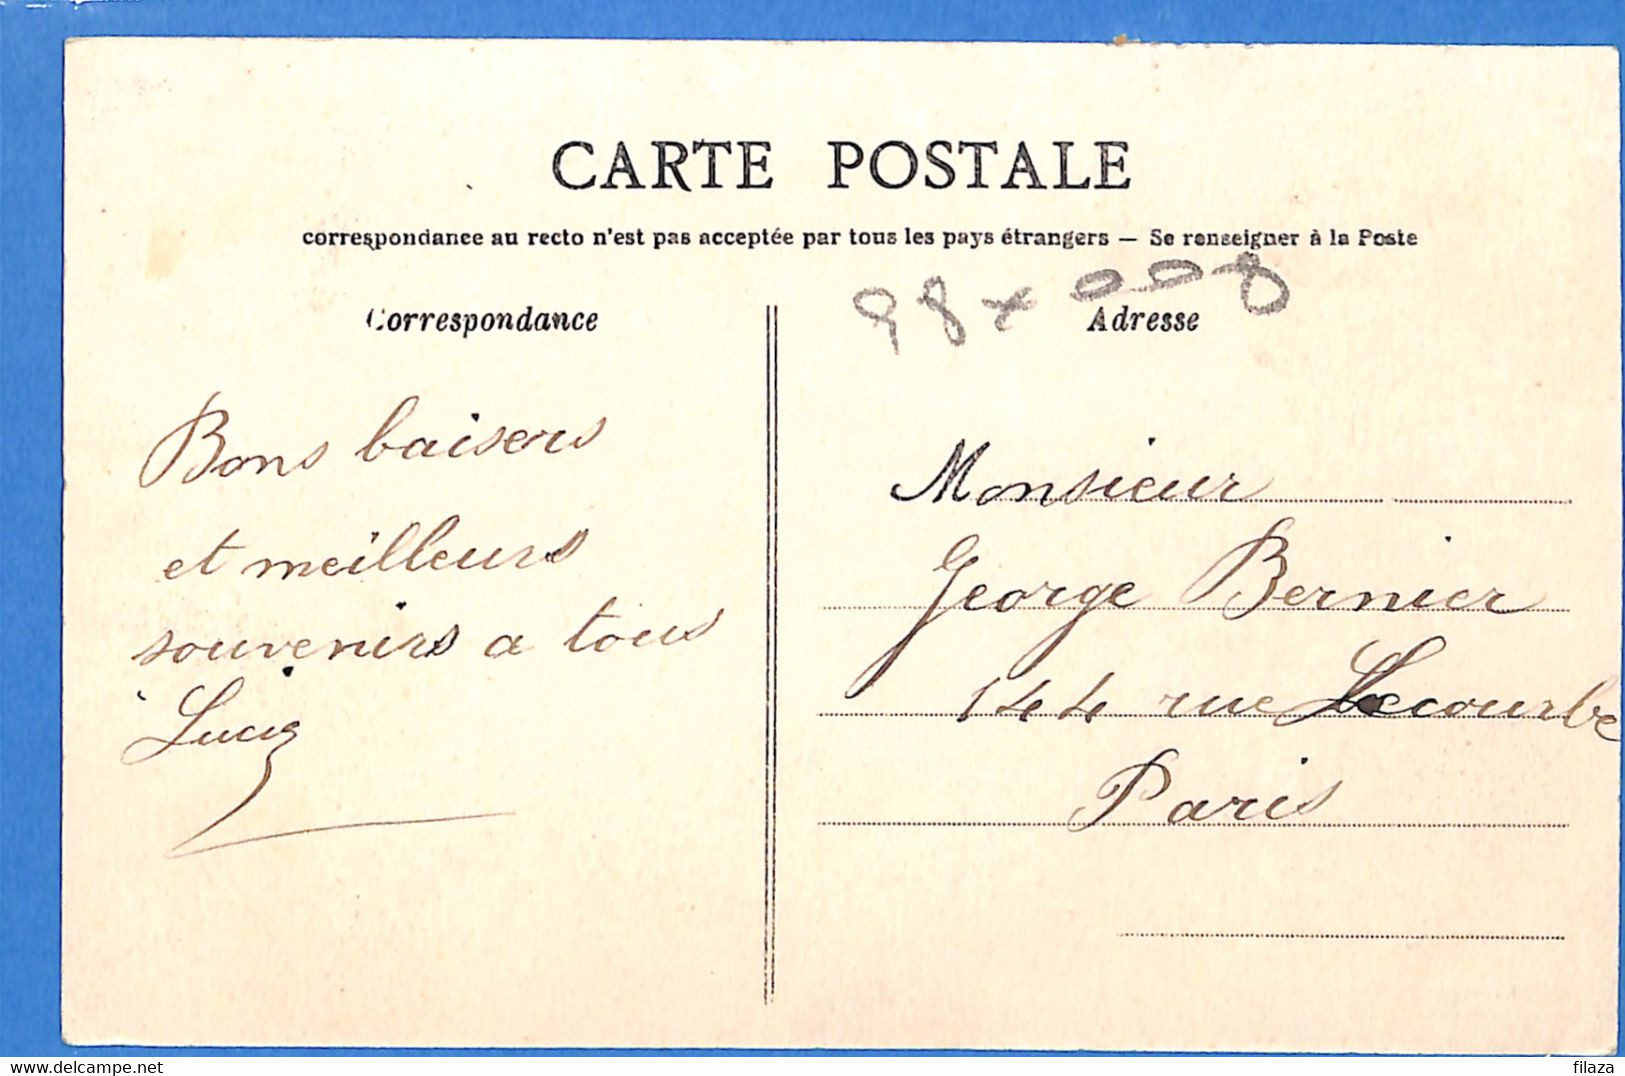 CARTE POSTALE
correspondance au recto n'est pas acceptée par tous les pays étrangers — Se renseigner à la Poste
98 x 008
Correspondance
Adresse
Bons baisers
et meilleurs
souvenirs a tous
Lucie
Monsieur
George Bernier
144 rue Lecourbe
Paris
www.delcampe.net
filaza